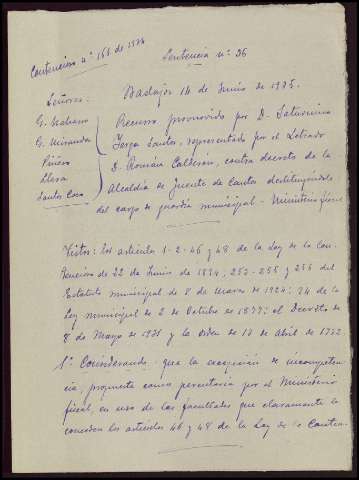 Contencioso nº 166 de 1934
Sentencia nº 36
Señores:
Badajoz 14 de Junio de 1935.
G. Miranda
Piñero
Llera
Santos Coco
Recurso promovido por D. Saturnino
Santos, representado por el Letrado
D. Román Calderon, contra decreto de la
Alcaldia de Fuente de Cantos destituyéndole
del cargo de guardia municipal - Ministerio fiscal
Vistos: los articulos 1-2-46 y 48 de la Ley de lo Con-
tencioso de 22 de Junio de 1894; 253-255 y 256 del
Estatuto municipal de 8 de Marzo de 1924; 74 de la
Ley municipal de 2 de Octubre de 1877; el Decreto de
8 de Mayo de 1931 y la Orden de 18 de Abril de 1932
1º Considerando que la excepción de incompeten-
cia, propuesta como perentoria por el Ministerio
fiscal, en uso de las facultades que claramente le
conceden los articulos 46 y 48 de la Ley de lo Conten-